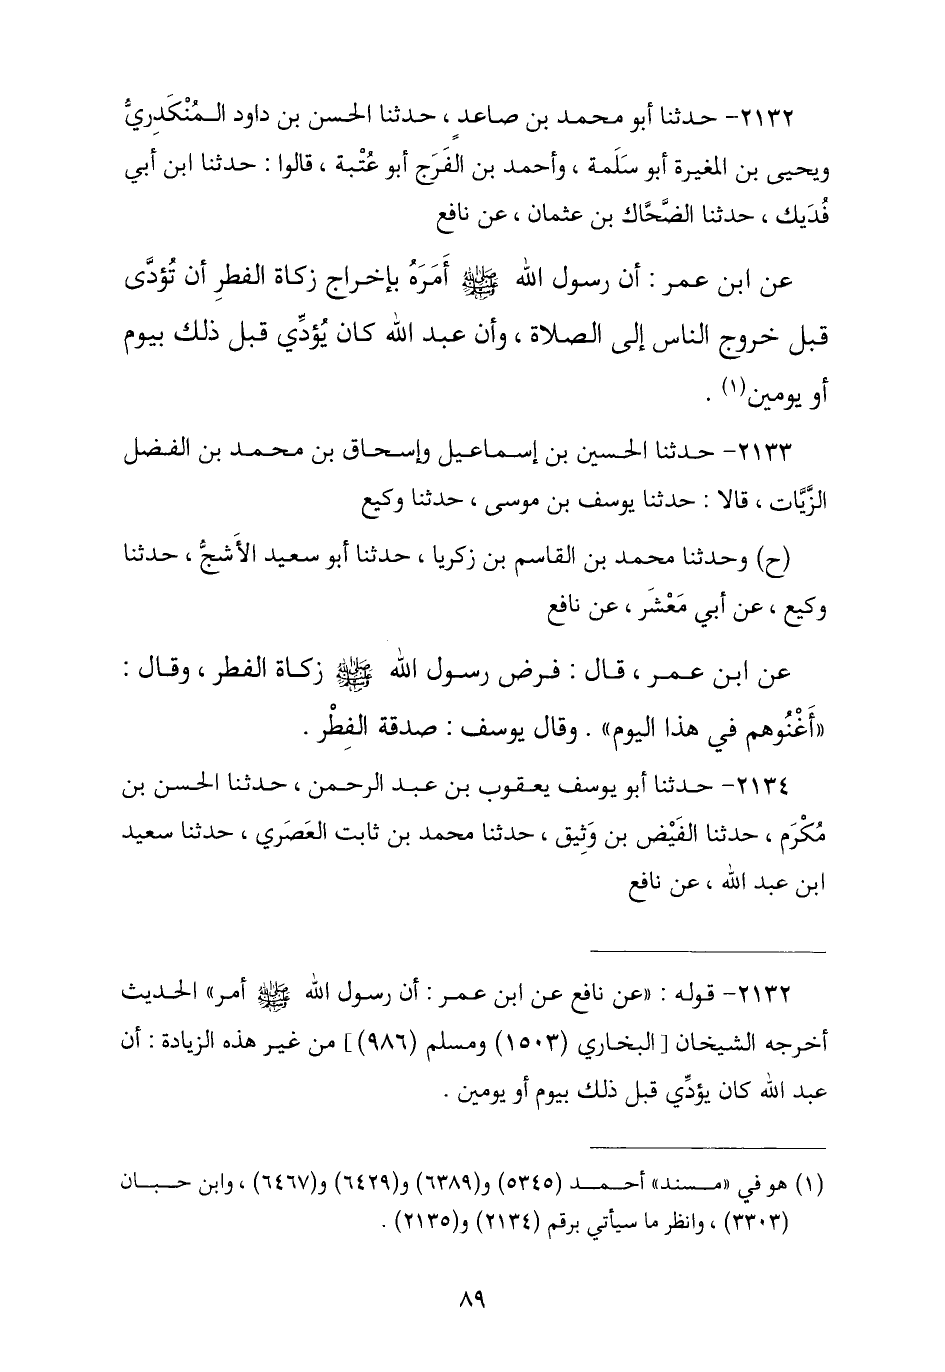 ٢١٣٢- حدثنا أبو محمد بن صاعدٍ ، حدثنا الحسن بن داود المُنْكَدِريُّ
ويحيى بن المغيرة أبو سَلَمة ، وأحمد بن الفَرَج أبو عُتْبة ، قالوا : حدثنا ابن أبي
فُدَيك ، حدثنا الضَّحَّاك بن عثمان ، عن نافع
عن ابن عمر : أن رسول الله ﷺ أَمَرَهُ بإخراج زكاة الفطرِ أن تُؤدَّى
قبل خروج الناس إلى الصلاة ، وأن عبد الله كان يُؤدِّي قبل ذلك بيوم
أو يومين(١) .
٢١٣٣- حدثنا الحسين بن إسماعيل وإسحاق بن محمد بن الفضل
الزَّيَّات ، قالا : حدثنا يوسف بن موسى ، حدثنا وكيع
(ح) وحدثنا محمد بن القاسم بن زكريا ، حدثنا أبو سعيد الأَشجُّ ، حدثنا
وكيع ، عن أبي مَعْشَر ، عن نافع
عن ابن عمر ، قال : فرض رسول الله ﷺ زكاة الفطر ، وقال :
«أَغْنُوهم في هذا اليوم» . وقال يوسف : صدقة الفِطْر .
٢١٣٤- حدثنا أبو يوسف يعقوب بن عبد الرحمن ، حدثنا الحسن بن
مُكْرَم ، حدثنا الفَيْض بن وَثِيق ، حدثنا محمد بن ثابت العَصَري ، حدثنا سعيد
ابن عبد الله ، عن نافع
٢١٣٢- قوله : «عن نافع عن ابن عمر : أن رسول الله ﷺ أمر» الحديث
أخرجه الشيخان [البخاري (١٥٠٣) ومسلم (٩٨٦)] من غير هذه الزيادة : أن
عبد الله كان يؤدِّي قبل ذلك بيوم أو يومين .
(١) هو في «مسند» أحمد (٥٣٤٥) و(٦٣٨٩) و(٦٤٢٩) و(٦٤٦٧) ، وابن حبان
(٣٣٠٣) ، وانظر ما سيأتي برقم (٢١٣٤) و(٢١٣٥) .
٨٩